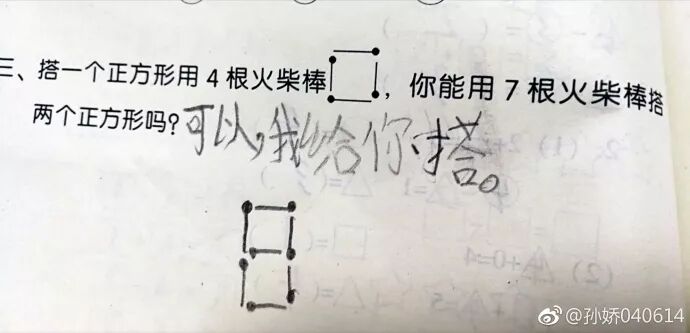 三、搭一个正方形用4根火柴棒，你能用7根火柴棒搭
两个正方形吗？可以，我给你搭。
@孙娇040614